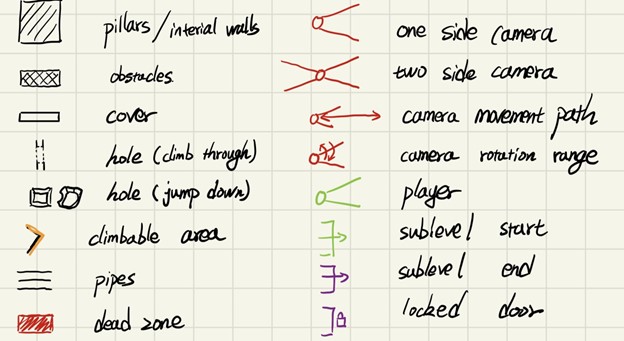 pillars/interial walls
obstacles
cover
hole (climb through)
hole (jump down)
climbable area
pipes
dead zone
one side camera
two side camera
camera movement path
camera rotation range
player
sublevel start
sublevel end
locked door